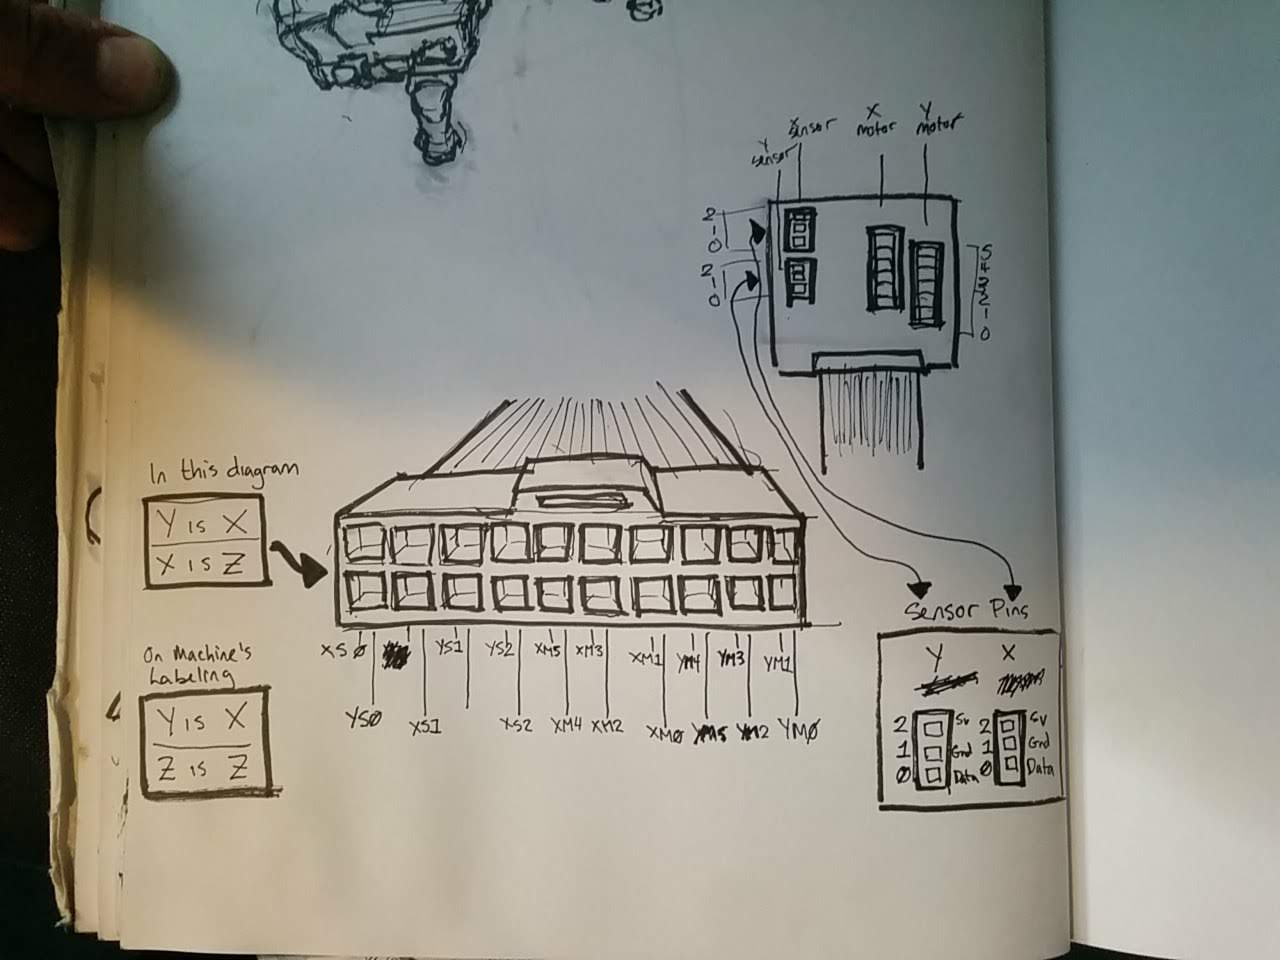 X
sensor
X
motor
Y
motor
Y
sensor
2
1
0
2
1
0
5
4
3
2
1
0
In this diagram
Y is X
X is Z
On Machine's
Labeling
Y is X
Z is Z
XSØ
YS1
YS2
XM5
XM3
XM1
YM4
YM3
YM1
YSØ
XS1
XS2
XM4
XM2
XMØ
YM5
YM2
YMØ
Sensor Pins
Y
X
2 5v
1 Gnd
Ø Data
2 5v
1 Gnd
Ø Data